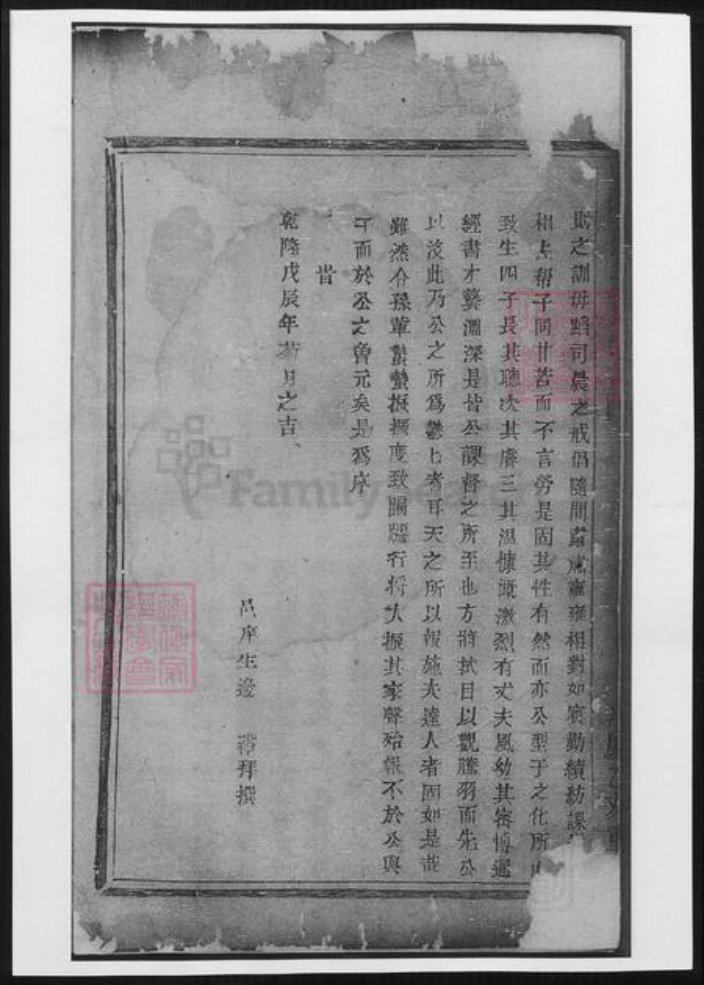 之訓毋蹈司晨之戒倡隨間肅肅雍雍相對如賓勤績紡課
相夫帮子同甘苦而不言勞是固其性有然而亦公型于之化所
致生四子長其聰次其睿三其溫慷慨激烈有丈夫風幼其密博通
經書才藝淵深是皆公課督之所至也方將拭目以觀騰羽而先公
以沒此乃公之所爲鬱上者耳天之所以報施夫達人者固如是哉
雖然令孫輩蟄蟄振振度致關驪行將大振其家聲殆報不於公與
而於公之曾元矣是爲序
旹
乾隆戊辰年菊月之吉
邑庠生邊 禮拜撰
FamilySearch